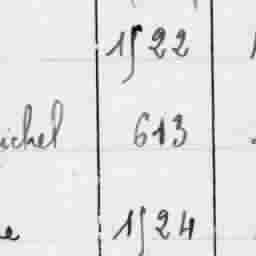 1522
ichel 613
e 1524